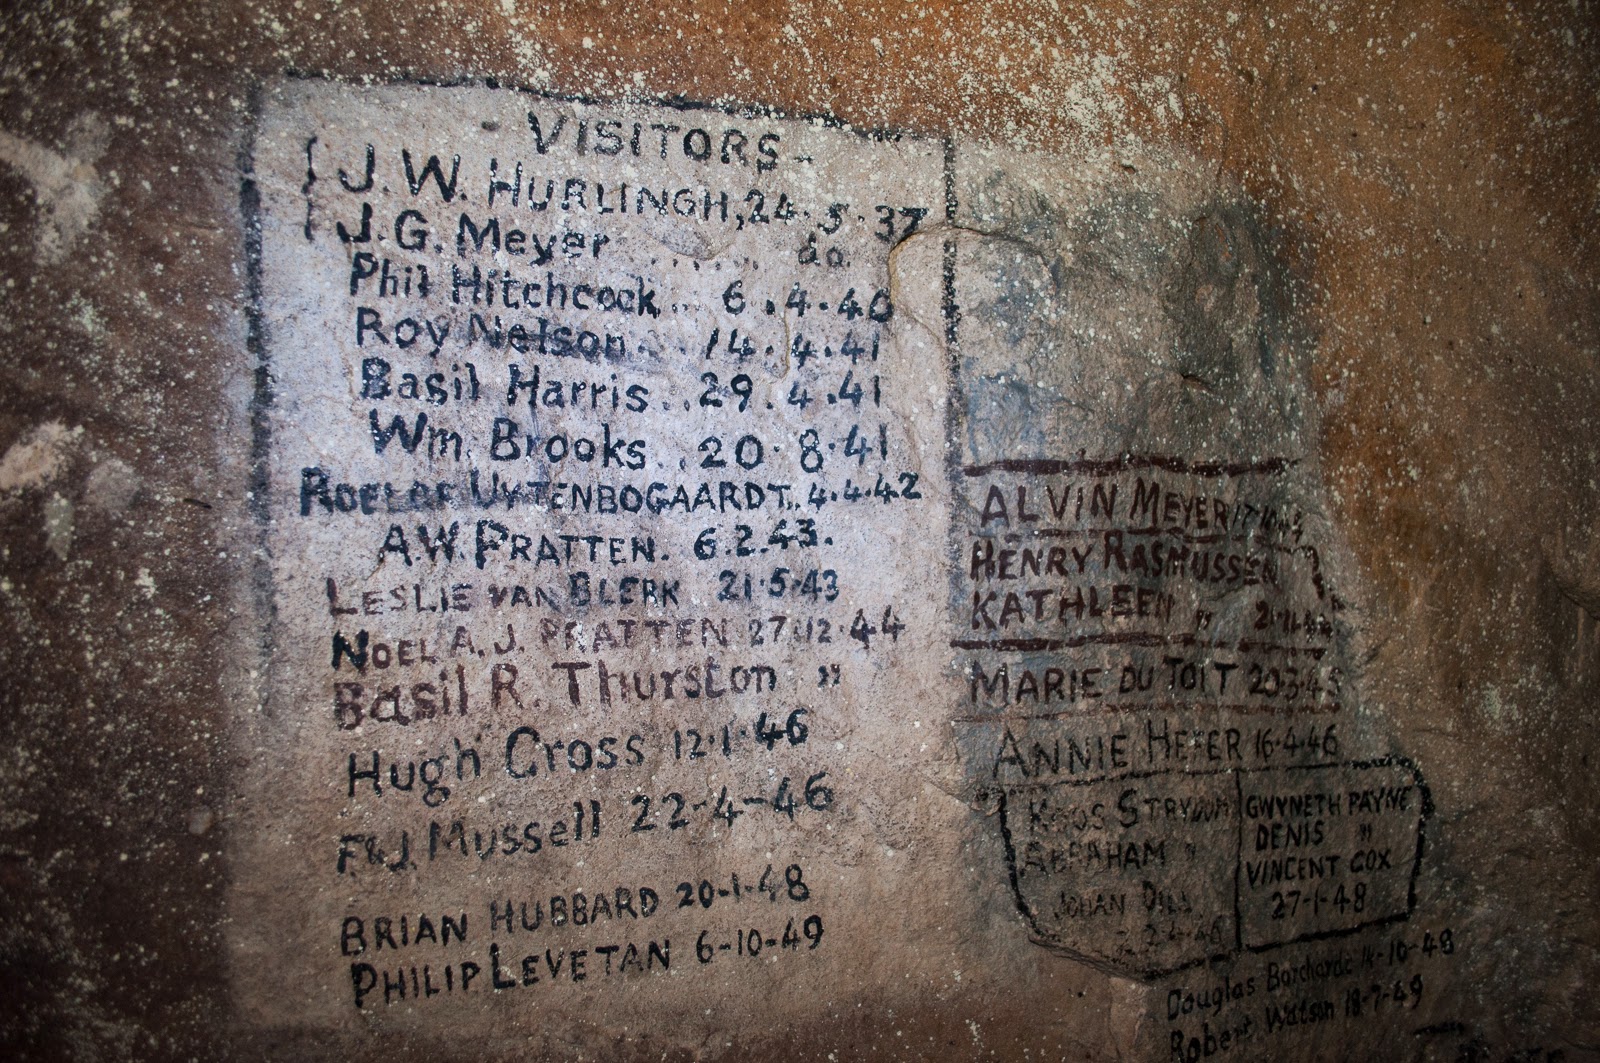 VISITORS-
J.W. HURLINGH, 24.5.37
J.G. Meyer ...... do.
Phil Hitchcock.. 6.4.40
Roy Nelson... 14.4.41
Basil Harris.. 29.4.41
Wm. Brooks.. 20.8.41
ROELOF UYTENBOGAARDT.. 4.4.42
A.W. PRATTEN. 6.2.43.
LESLIE VAN BLERK 21.5.43
NOEL A.J. PRATTEN 27.12.44
Basil R. Thurston "
Hugh Cross 12.1.46
F.&J. Mussell 22-4-46
BRIAN HUBBARD 20-1-48
PHILIP LEVETAN 6-10-49
ALVIN MEYER
HENRY RASMUSSEN
KATHLEEN "
MARIE DU TOIT 20.3.45
ANNIE HEFER 16.4.46
KOOS STRYDOM
ABRAHAM "
JOHAN
2.4.46
GWYNETH PAYNE
DENIS "
VINCENT COX
27-1-48
Douglas Borcharde 14-10-48
Robert Watson 18-7-49